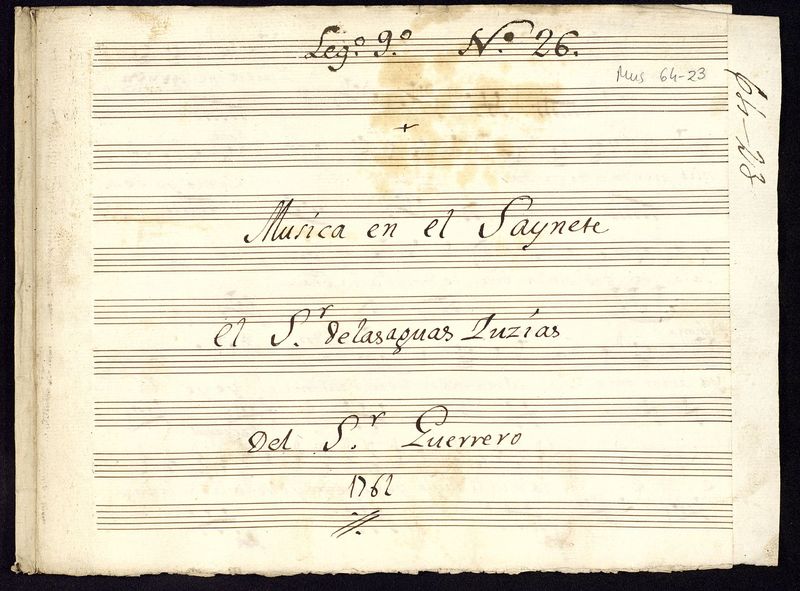 Leg.º 9.º N.º 26.
Mus 64-23
64-23
Musica en el Saynete
el S.r delasaguas Luzías
Del S.r Guerrero
1762